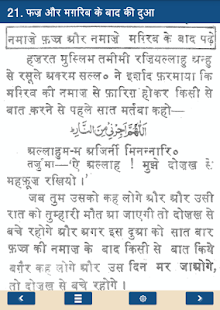 21. फज्र और मग़रिब के बाद की दुआ
नमाज़े फ़ज्र और नमाज़े मग़रिब के बाद पढ़ें
हज़रत मुस्लिम तमीमी रज़ियल्लाहु अन्हु
से रसूले अकरम सल्ल० ने इर्शाद फ़रमाया कि
मग़रिब की नमाज़ से फ़ारिग़ होकर किसी से
बात करने से पहले सात मर्तबा कहो—
اَللّٰهُمَّ اَجِرْنِيْ مِنَ النَّارِ
अल्लाहुम-म अजिर्नी मिनन्नारि०
तर्जुमा—'ऐ अल्लाह ! मुझे दोज़ख़ से
महफ़ूज़ रखियो ।'
जब तुम उसको कह लोगे और और उसी
रात को तुम्हारी मौत आ जाएगी तो दोज़ख़ से
बचे रहोगे और अगर इस दुआ को सात बार
फ़ज्र की नमाज़ के बाद किसी से बात किये
बग़ैर कह लोगे और उस दिन मर जाओगे,
तो दोज़ख़ से बचे रहोगे ।